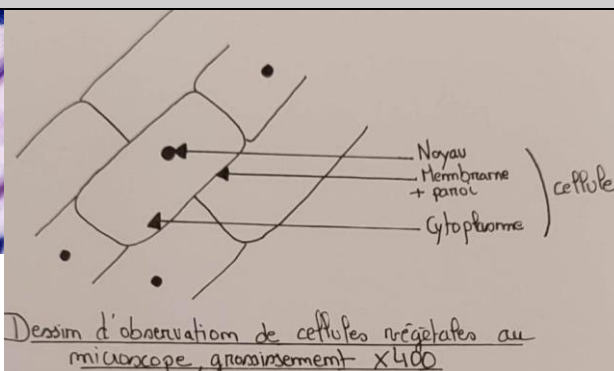 Noyau
Membrane
+ paroi
Cytoplasme
cellule
Dessin d'observation de cellules végétales au
microscope, grossissement x400